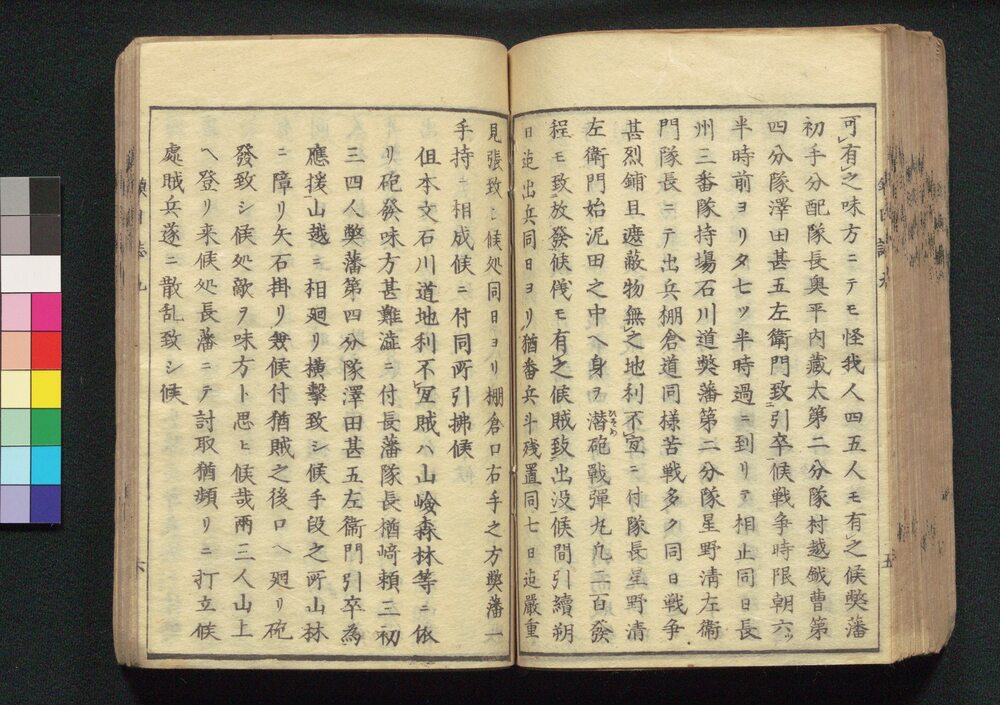 可有之味方ニテモ怪我人四五人モ有之候弊藩
初手分配隊長奥平内藏太第二分隊村越鋠曹第
四分隊澤田甚五左衛門致引卒候戦争時限朝六ッ
半時前ヨリタ七ッ半時過ニ到リテ相止同日長
州三番隊持場石川道弊藩第二分隊星野清左衛
門隊長ニテ出兵棚倉道同様苦戦多ク同日戦争
甚烈鋪且遮蔽物無之地利不宜ニ付隊長星野清
左衛門始泥田之中ヘ身ヲ潜砲戦彈丸凡二百發
ひそめ
程モ致放發候儀モ有之候賊致出没候間引續朔
日迠出兵同日ヨリ猶番兵斗残置同七日迠嚴重
見張致シ候処同日ヨリ棚倉口右手之方弊藩一
手持ト相成候ニ付同所引拂候
但本文石川道地利不宜賊ハ山嶮森林等ニ依
リ砲發味方甚難澁ニ付長藩隊長楢﨑頼三初
三四人弊藩第四分隊澤田甚五左衛門引卒為
應援山越ニ相廻リ横撃致シ候手段之所山林
ニ障リ矢石掛リ兼候付猶賊之後口ヘ廻リ砲
發致シ候処敵ヲ味方ト思ヒ候哉兩三人山上
ヘ登リ来候処長藩ニテ討取猶頻リニ打立候
處賊兵遂ニ散乱致シ候
五
六